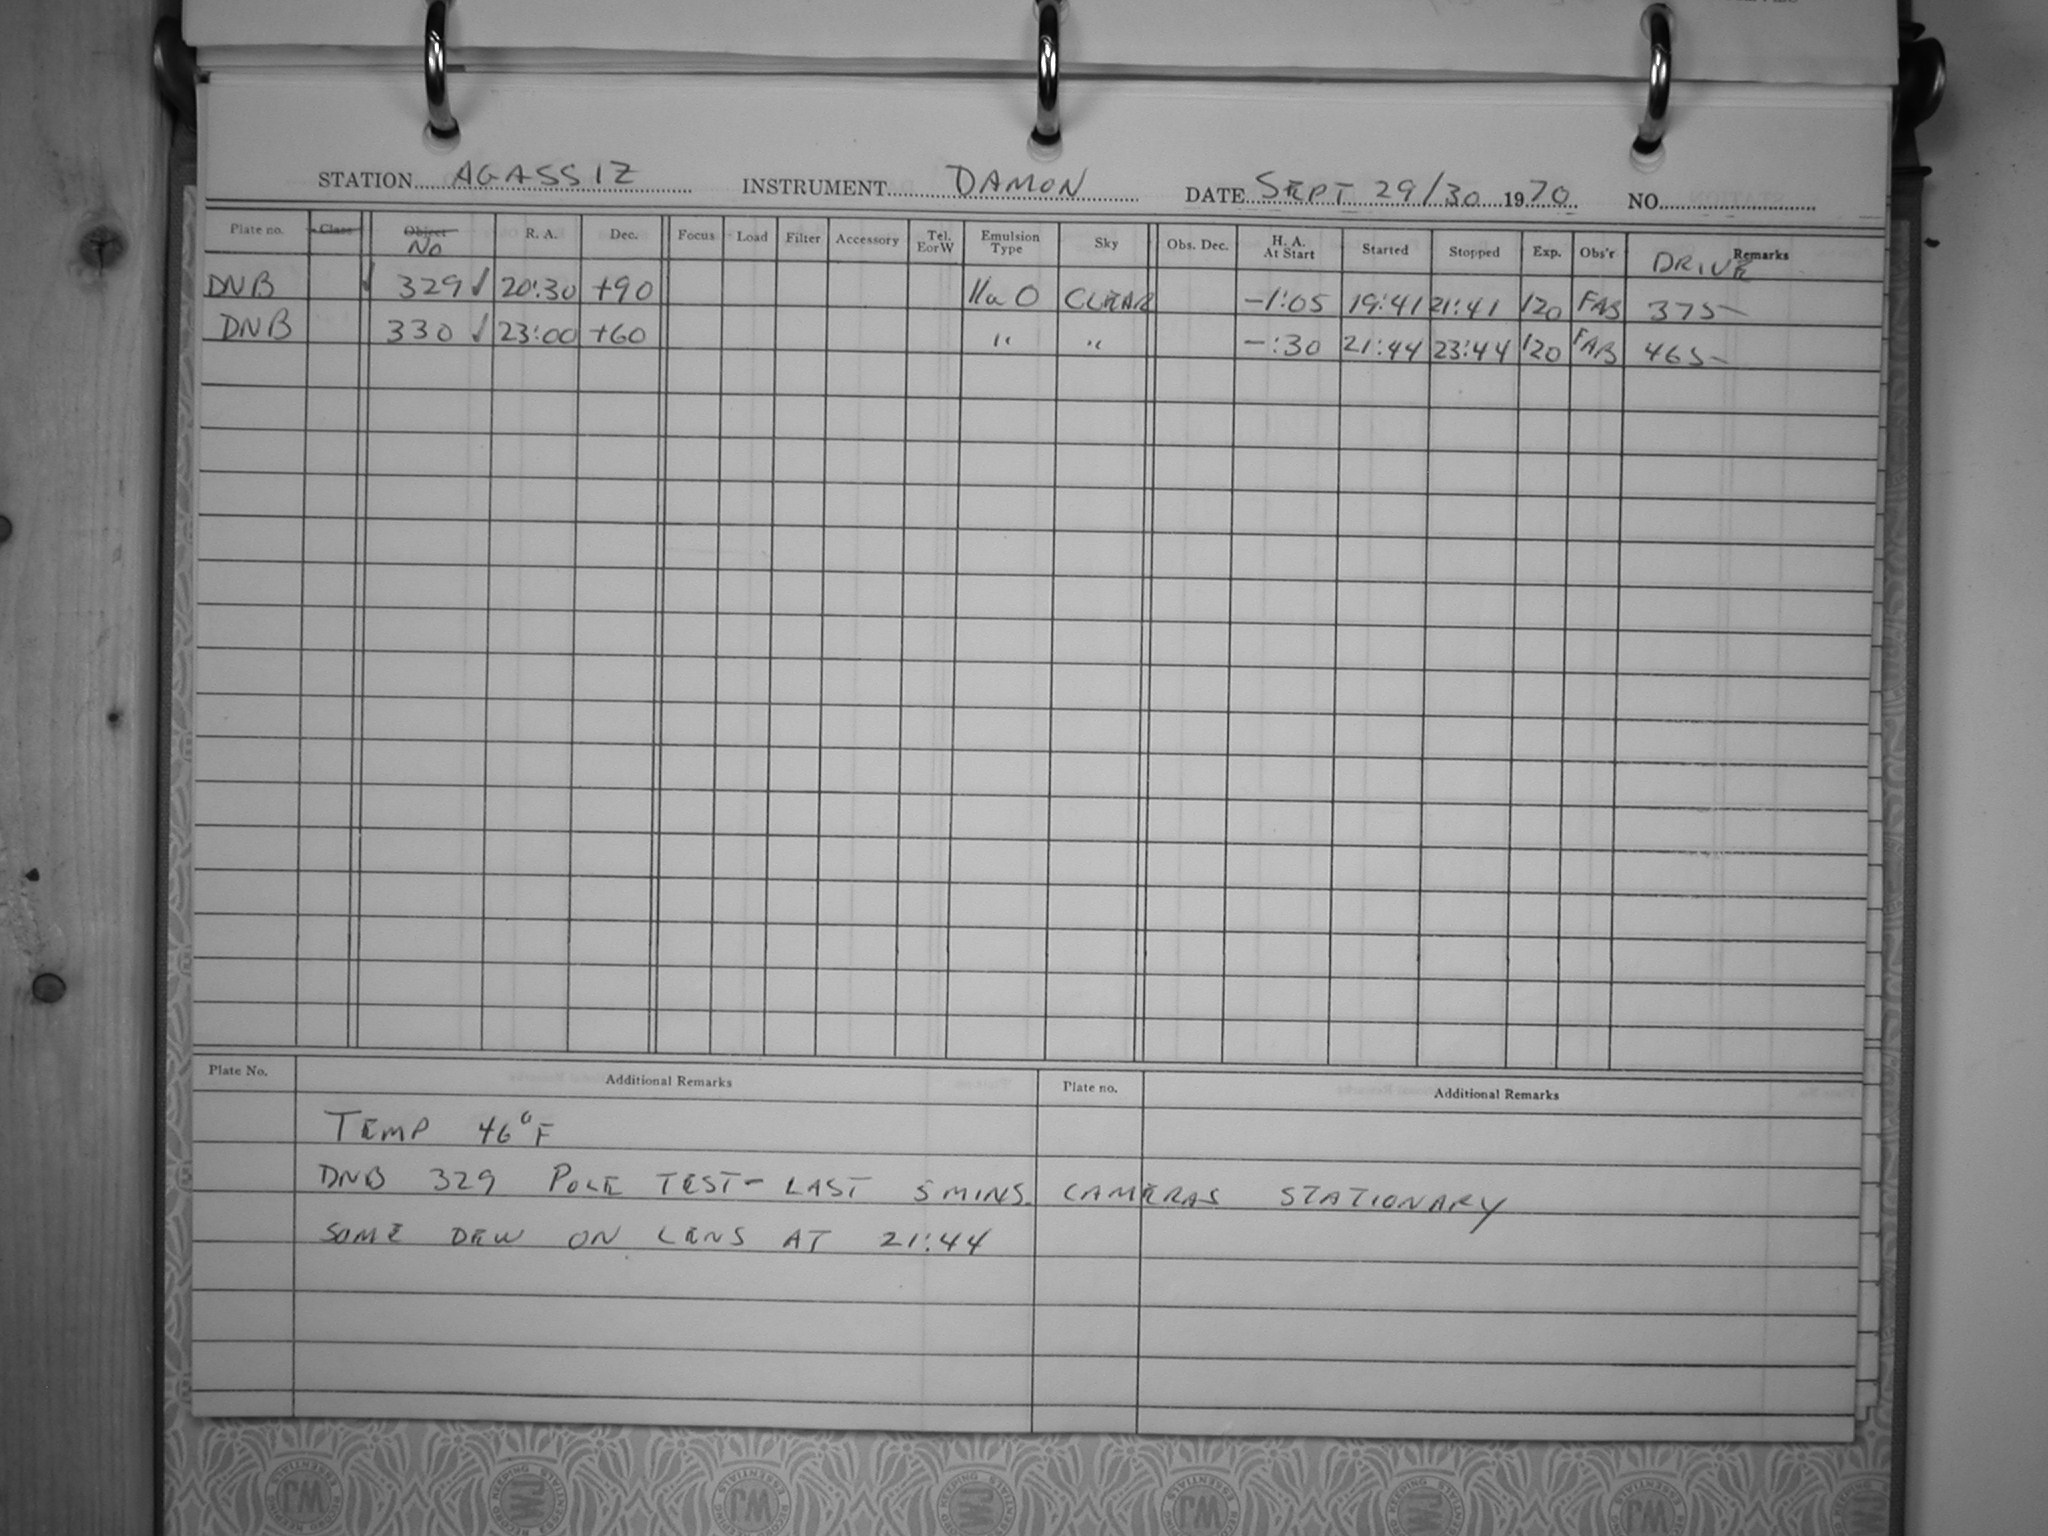 STATION AGASSIZ INSTRUMENT DAMON DATE SEPT 29/30 1970 NO.
Plate no. Class Object No R. A. Dec. Focus Load Filter Accessory Tel. E or W Emulsion Type Sky Obs. Dec. H. A. At Start Started Stopped Exp. Obs'r DRIVE Remarks
DNB 329 ✓ 20:30 +90 IIa O CLEAR -1:05 19:41 21:41 120 FAB 375-
DNB 330 ✓ 23:00 +60 " " -:30 21:44 23:44 120 FAB 465-
Plate No. Additional Remarks Plate no. Additional Remarks
TEMP 46°F
DNB 329 POLE TEST- LAST 5 MINS. CAMERAS STATIONARY
SOME DEW ON LENS AT 21:44